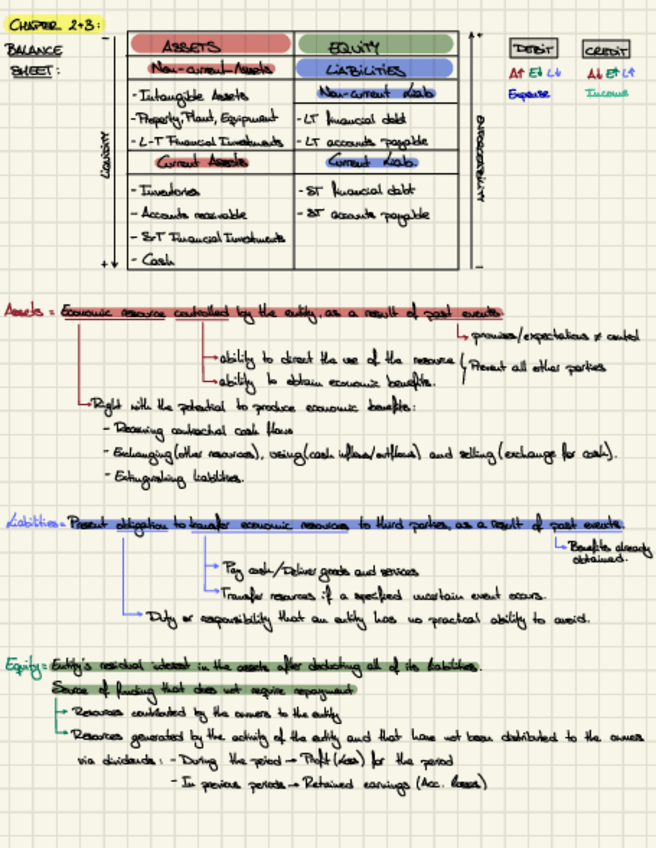 CHAPTER 2+3:
BALANCE
SHEET:
ASSETS
EQUITY
DEBIT
CREDIT
Non-current Assets
LIABILITIES
A↑ E↓ L↓
A↓ E↑ L↑
Expense
Income
- Intangible Assets
Non-current Liab.
- Property, Plant, Equipment
- LT financial debt
- L-T Financial Investments
- LT accounts payable
Current Assets
Current Liab.
- Inventories
- ST financial debt
- Accounts receivable
- ST accounts payable
- S-T Financial Investments
- Cash
LIQUIDITY
- +
+ -
Assets = Economic resource controlled by the entity, as a result of past events.
promises/expectations ≠ control
ability to direct the use of the resource
Prevent all other parties
ability to obtain economic benefits.
Right with the potential to produce economic benefits:
- Receiving contractual cash flows
- Exchanging (other resources), using (cash inflows/outflows) and selling (exchange for cash).
- Extinguishing liabilities.
Liabilities = Present obligation to transfer economic resources to third parties, as a result of past events.
Benefits already
obtained.
Pay cash/Deliver goods and services
Transfer resources if a specified uncertain event occurs.
Duty or responsibility that an entity has no practical ability to avoid.
Equity = Entity's residual interest in the assets after deducting all of its liabilities.
Source of funding that does not require repayment
Resources contributed by the owners to the entity
Resources generated by the activity of the entity and that have not been distributed to the owners
via dividends: - During the period → Profit (Loss) for the period
- In previous periods → Retained earnings (Acc. losses)